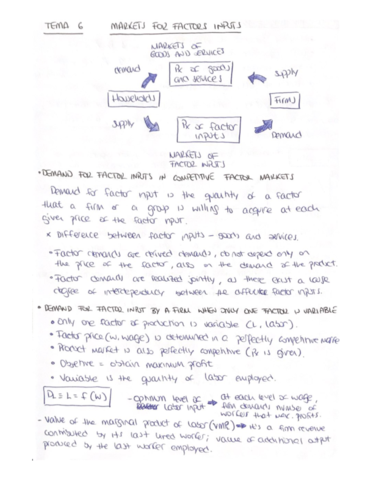 TEMA 6 MARKETS FOR FACTORS INPUTS
MARKETS OF
GOODS AND SERVICES
demand
Px of goods
and services
supply
Households
Firms
supply
Px of factor
inputs
Demand
MARKETS OF
FACTOR INPUTS
• DEMAND FOR FACTOR INPUTS IN COMPETITIVE FACTOR MARKETS
Demand for factor input is the quantity of a factor
that a firm or a group is willing to acquire at each
given price of the factor input.
× Difference between factor inputs – goods and services.
• Factor demands are derived demands, do not depend only on
the price of the factor, also on the demand of the product.
• Factor demands are realized jointly, as there exist a large
degree of interdependency between the factor inputs.
• DEMAND FOR FACTOR INPUT BY A FIRM WHEN ONLY ONE FACTOR IS VARIABLE
• Only one factor of production is variable (L, labor).
• Factor price (w, wage) is determined in a perfectly competitive
• Product market is also perfectly competitive (Px is given).
• Objective = obtain maximum profit
• Variable is the quantity of labor employed.
DL ≡ L = f (w)
- Optimum level of
labor input
→ at each level of wage,
firm demands number of
workers that max. profits.
- Value of the marginal product of labor (VMP) → it's a firm revenue
contributed by its last hired worker; value of additional output
produced by the last worker employed.